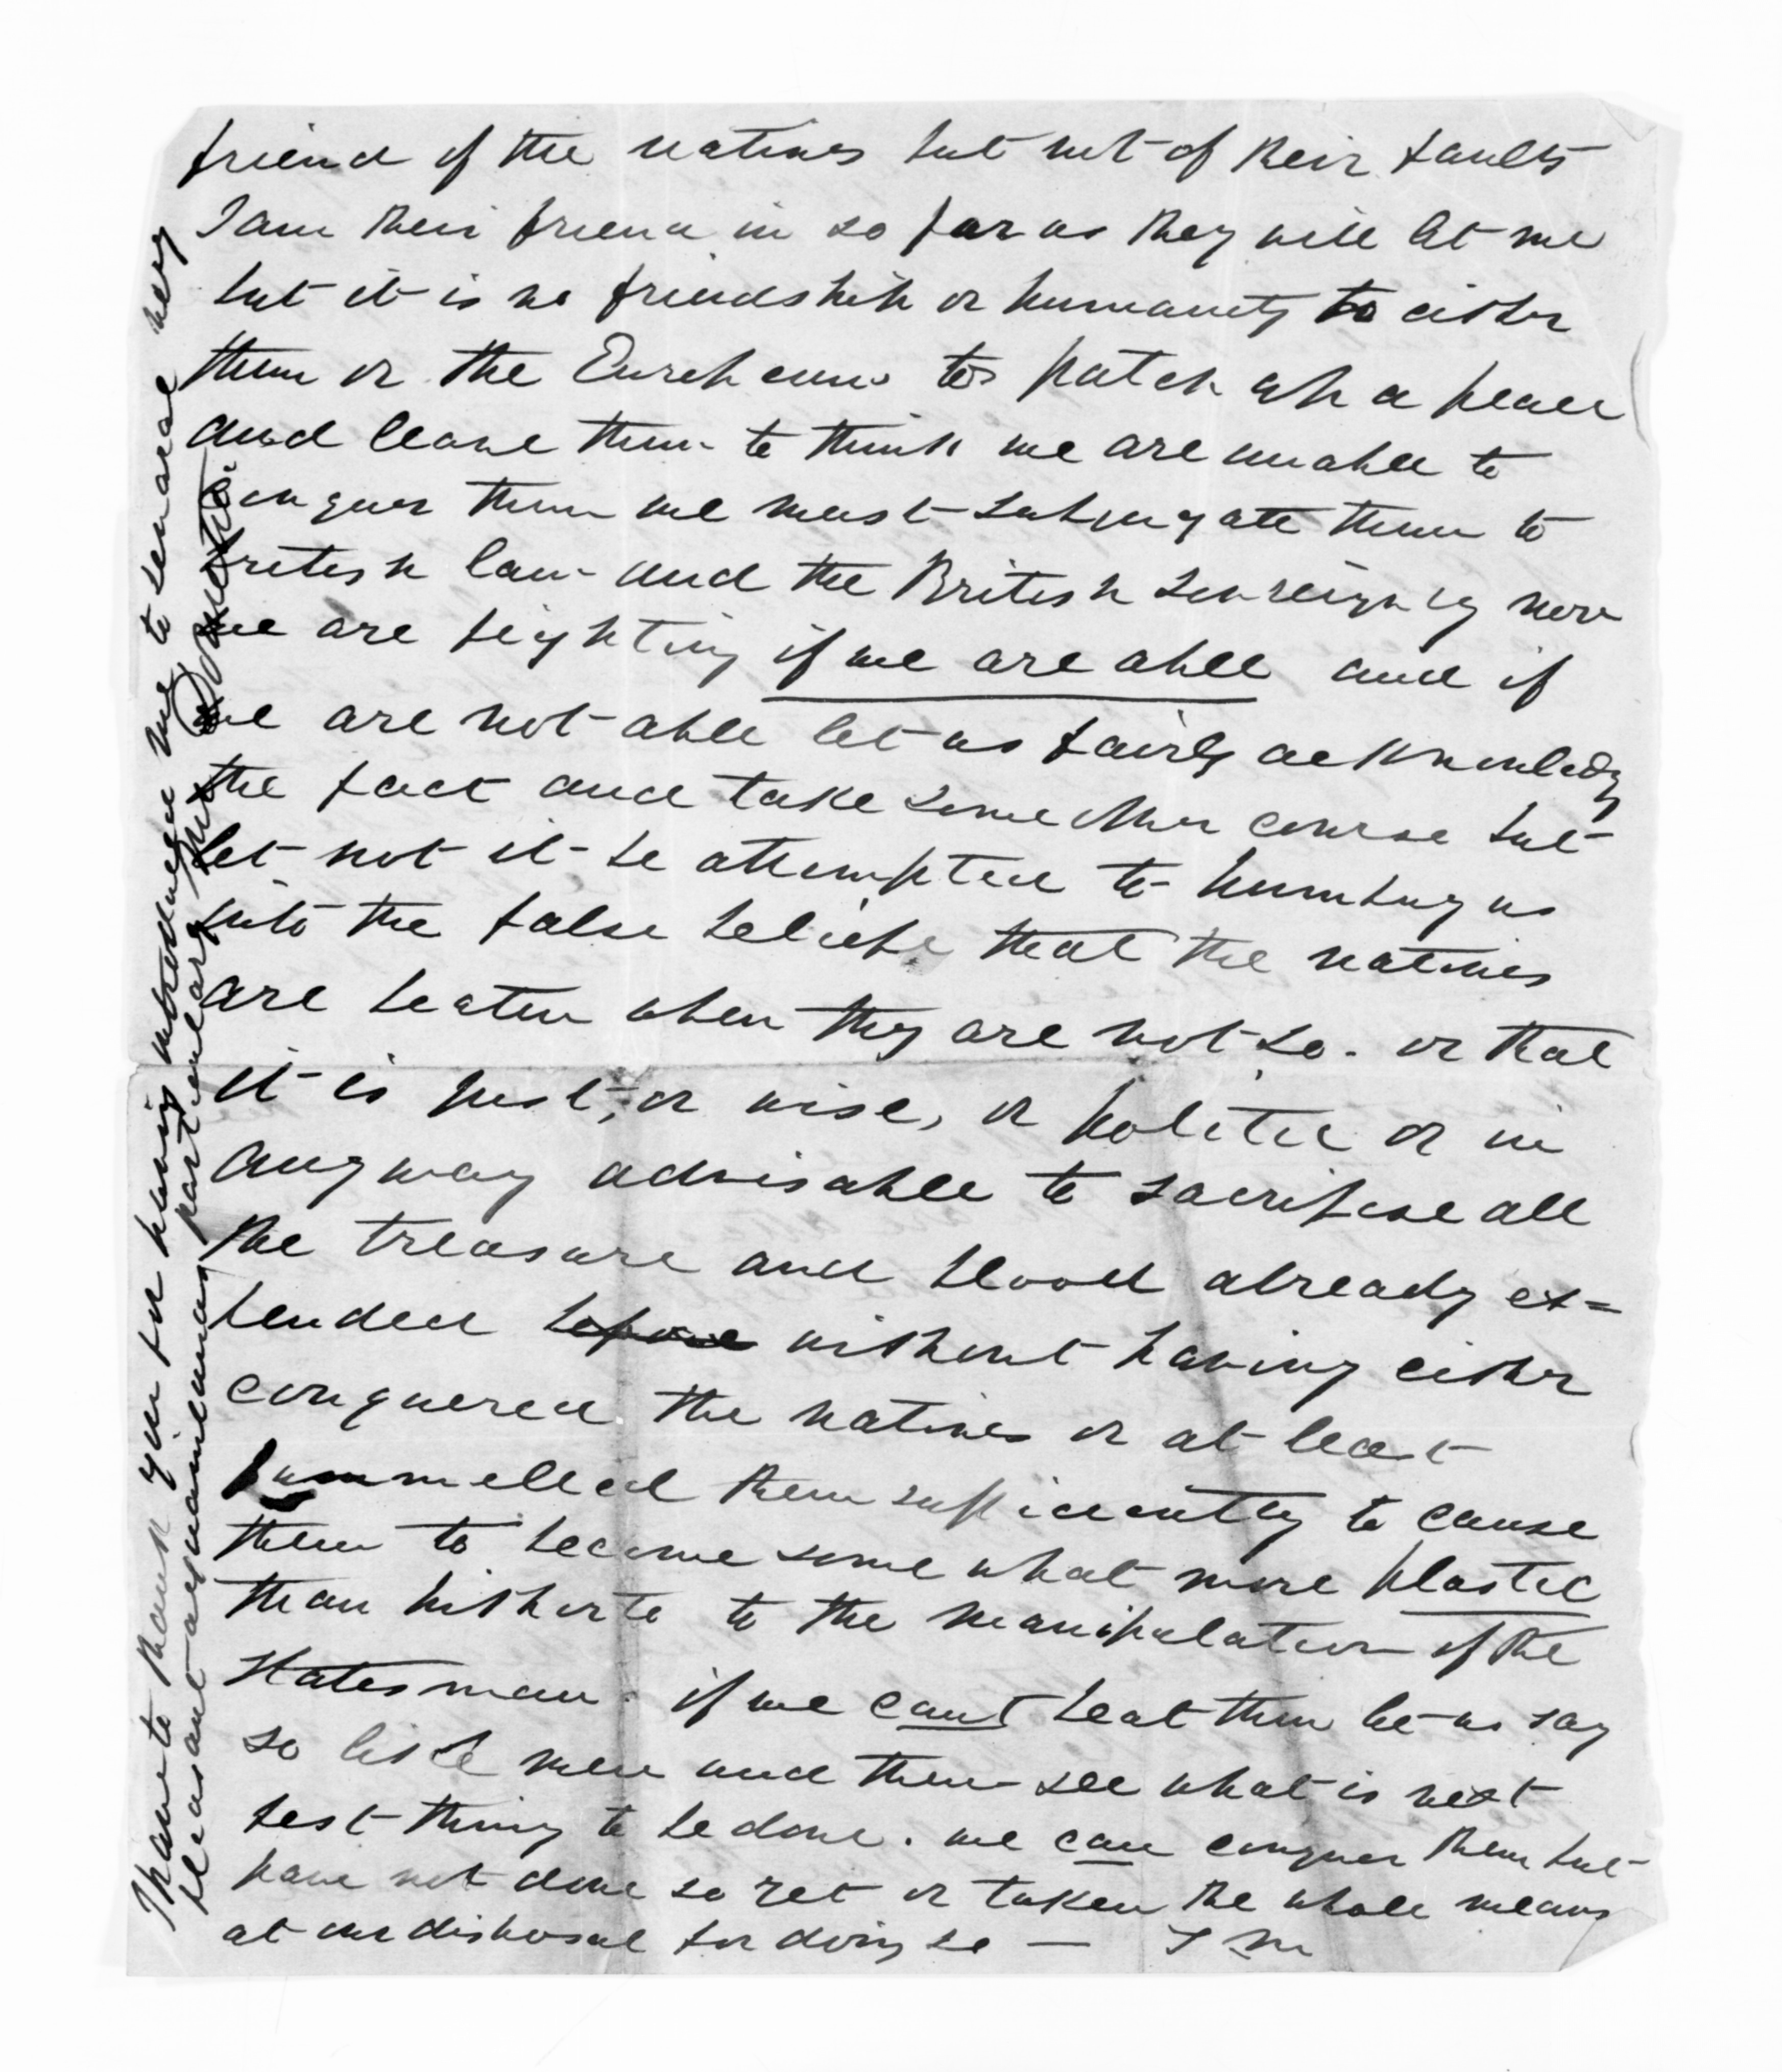 friend of the natives but not of their faults
I am their friend in so far as they will let me
but it is no friendship or humanity to either
them or the Europeans to patch up a peace
and leave them to think we are unable to
conquer them we must subjugate them to
British law and the British sovreignty now
we are fighting if we are able and if
we are not able let us fairly acknowledg
the fact and take some other course but
let not it be attempted to humbug us
into the false beliefe that the natives
are beaten when they are not so. or that
it is just, or wise, or politic or in
any way advisable to sacrifise all
the treasure and blood already ex=
pended before without having either
conquered the natives or at least
pummelled them sufficiently to cause
them to become some what more plastic
than hitherto to the manipulation of the
Statesman. if we cant beat them let us say
so like men and then see what is next
best thing to be done. we can conquer them but
have not done so yet or taken the whole means
at our disposal for doing so —
I have to thank you for having introduced me to several very
pleasant acquaintances particularly